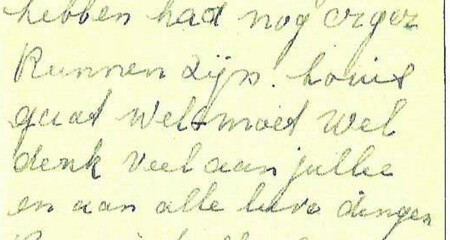 hebben had nog erger
kunnen zijn. houd
gaat wel moet wel
denk veel aan jullie
en aan alle lieve dingen